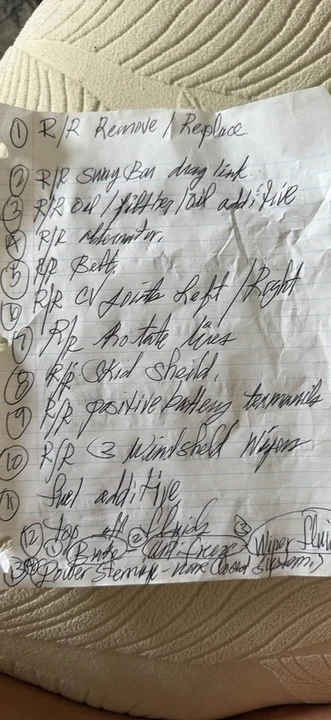 ① R/R Remove / Replace
② R/R Sway Bar drag link
③ R/R Oil / filtter / oil additive
④ R/R Alternator.
⑤ R/R Belt.
⑥ R/R CV Joints Left / Right
⑦ R/R Rotate tires
⑧ R/R Skid Sheild.
⑨ R/R positive battery termanils
⑩ R/R ③ Windsheld Wipers
⑪ fuel additive
⑫ top off fluids
① Brake ② Anti-freeze ③ Wiper flui
⑬ Power Steering - none ( System)